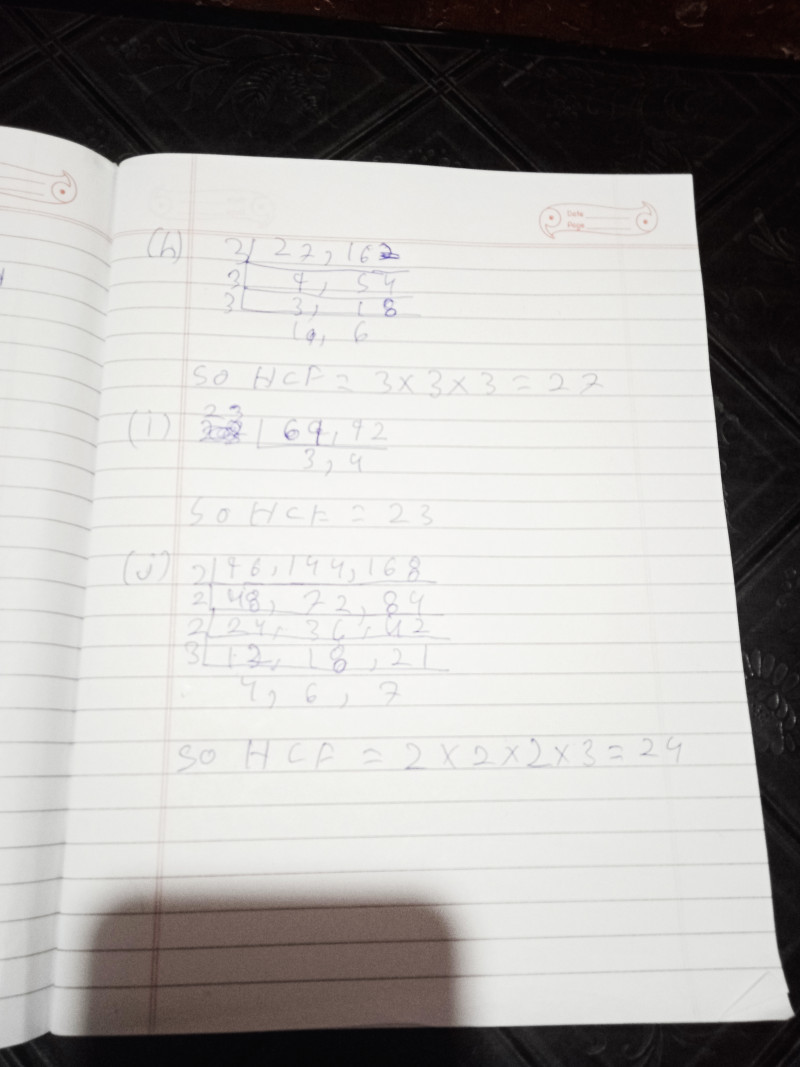 Date
Page
(h) 3 27, 162
3 9, 54
3 3, 18
1, 6
SO HCF = 3×3×3 = 27
(i) 23 69, 92
3, 4
SO HCF = 23
(j) 2 96, 144, 168
2 48, 72, 84
2 24, 36, 42
3 12, 18, 21
4, 6, 7
SO HCF = 2×2×2×3 = 24